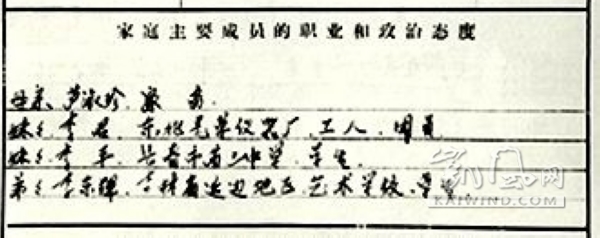 家庭主要成员的职业和政治态度
母亲、芦淑珍、家务
妹妹、李君、仪器厂、工人、团员
妹妹、李平、长春市中学、学生
弟弟、李东辉、吉林省延边地区、艺术学校、学生
凯风网
KAIWIND.COM